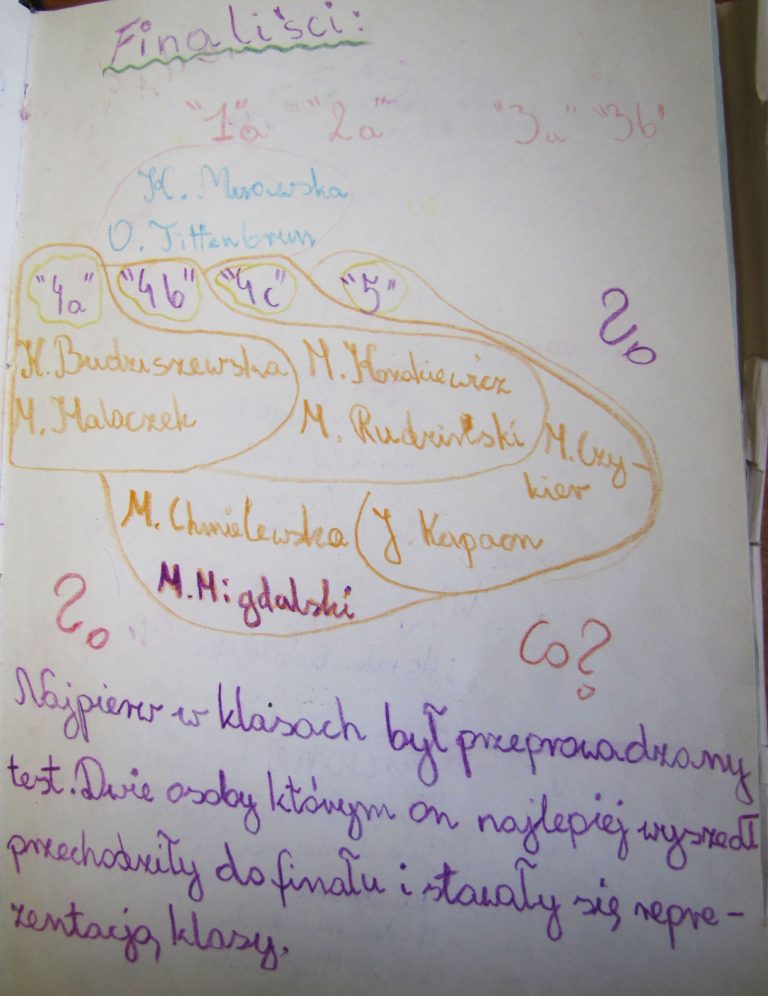 Finaliści:
"1a" "2a" "3a" "3b"
K. Murawska
O. Tittenbrun
"4a" "4b" "4c" "5"
K. Budziszewska M. Kozakiewicz
M. Halaczek M. Rudziński M. Czy-
kier
M. Chmielewska J. Kapaon
M. Migdalski
?
? Co?
Najpierw w klasach był przeprowadzany
test. Dwie osoby którym on najlepiej wyszedł
przechodziły do finału i stawały się repre-
zentacją klasy.